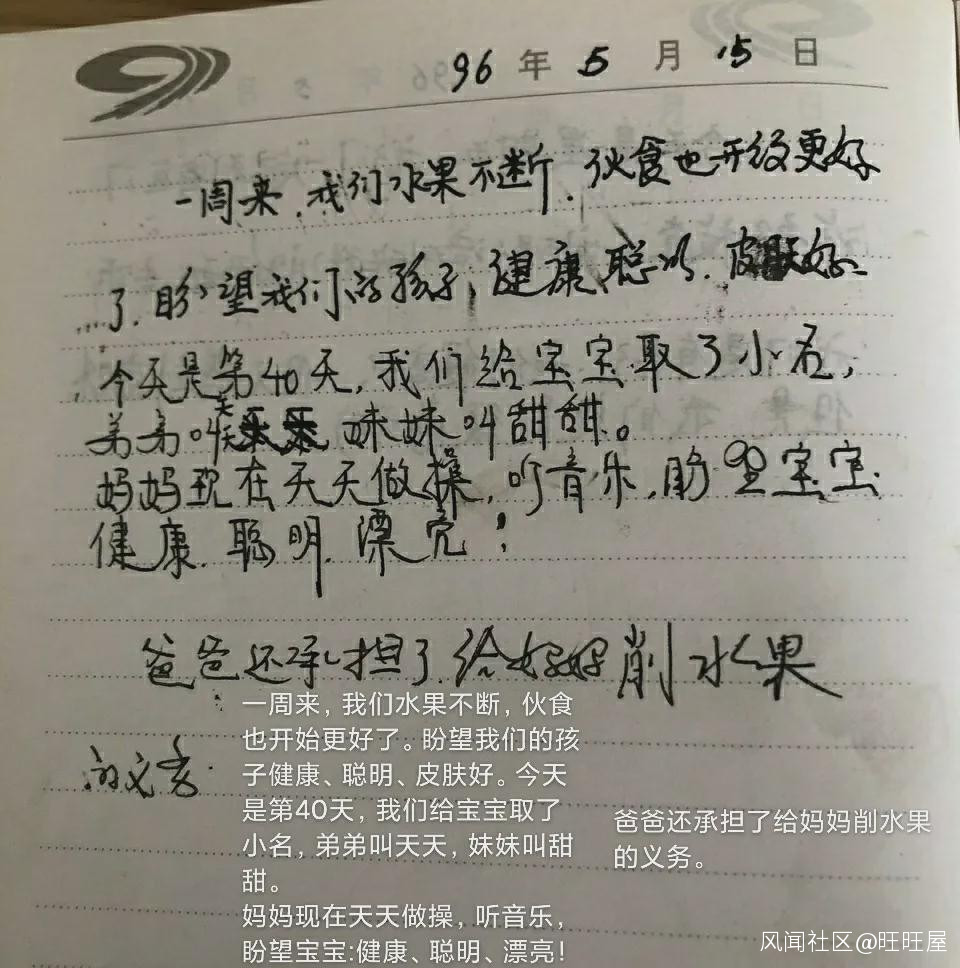 96年5月15日
一周来,我们水果不断.伙食也开始更好
了.盼望我们的孩子,健康、聪明.皮肤好.
今天是第40天,我们给宝宝取了小名,
弟弟叫天天 妹妹叫甜甜。
妈妈现在天天做操,听音乐,盼望宝宝
健康.聪明.漂亮!
爸爸还承担了给妈妈削水果
的义务.
一周来，我们水果不断，伙食
也开始更好了。盼望我们的孩
子健康、聪明、皮肤好。今天
是第40天，我们给宝宝取了
小名，弟弟叫天天，妹妹叫甜
甜。
妈妈现在天天做操，听音乐，
盼望宝宝:健康、聪明、漂亮！
爸爸还承担了给妈妈削水果
的义务。
风闻社区@旺旺屋